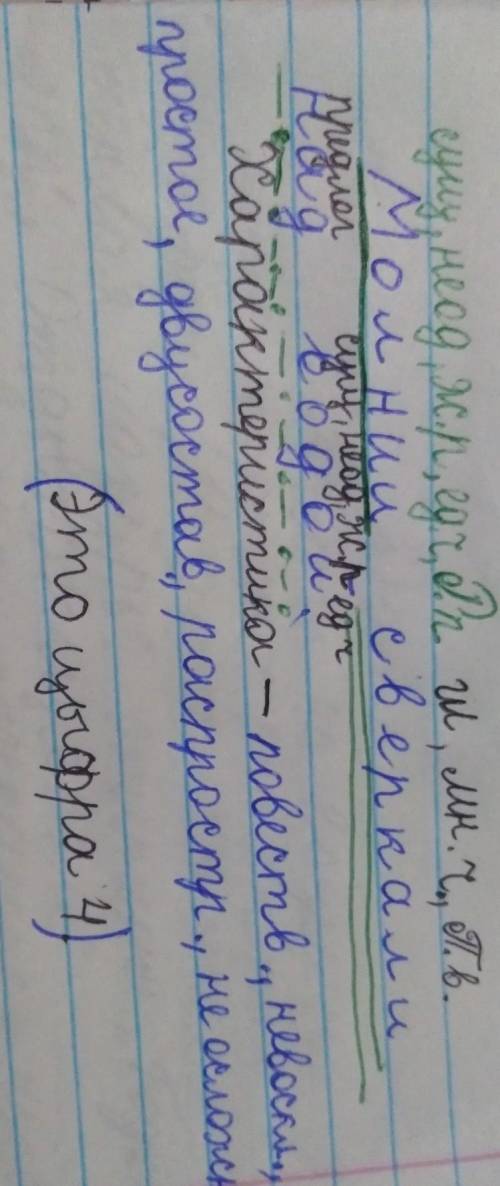 сущ, неод, ж.р, ед ч, Р.п. гл, мн.ч., П.в.
Молнии сверкали
предлог сущ, неод, ж.р ед ч
над водой.
Характеристика – повеств., невоскл.,
простое, двусостав., распростр., не осложн
(Это цыфра 4)